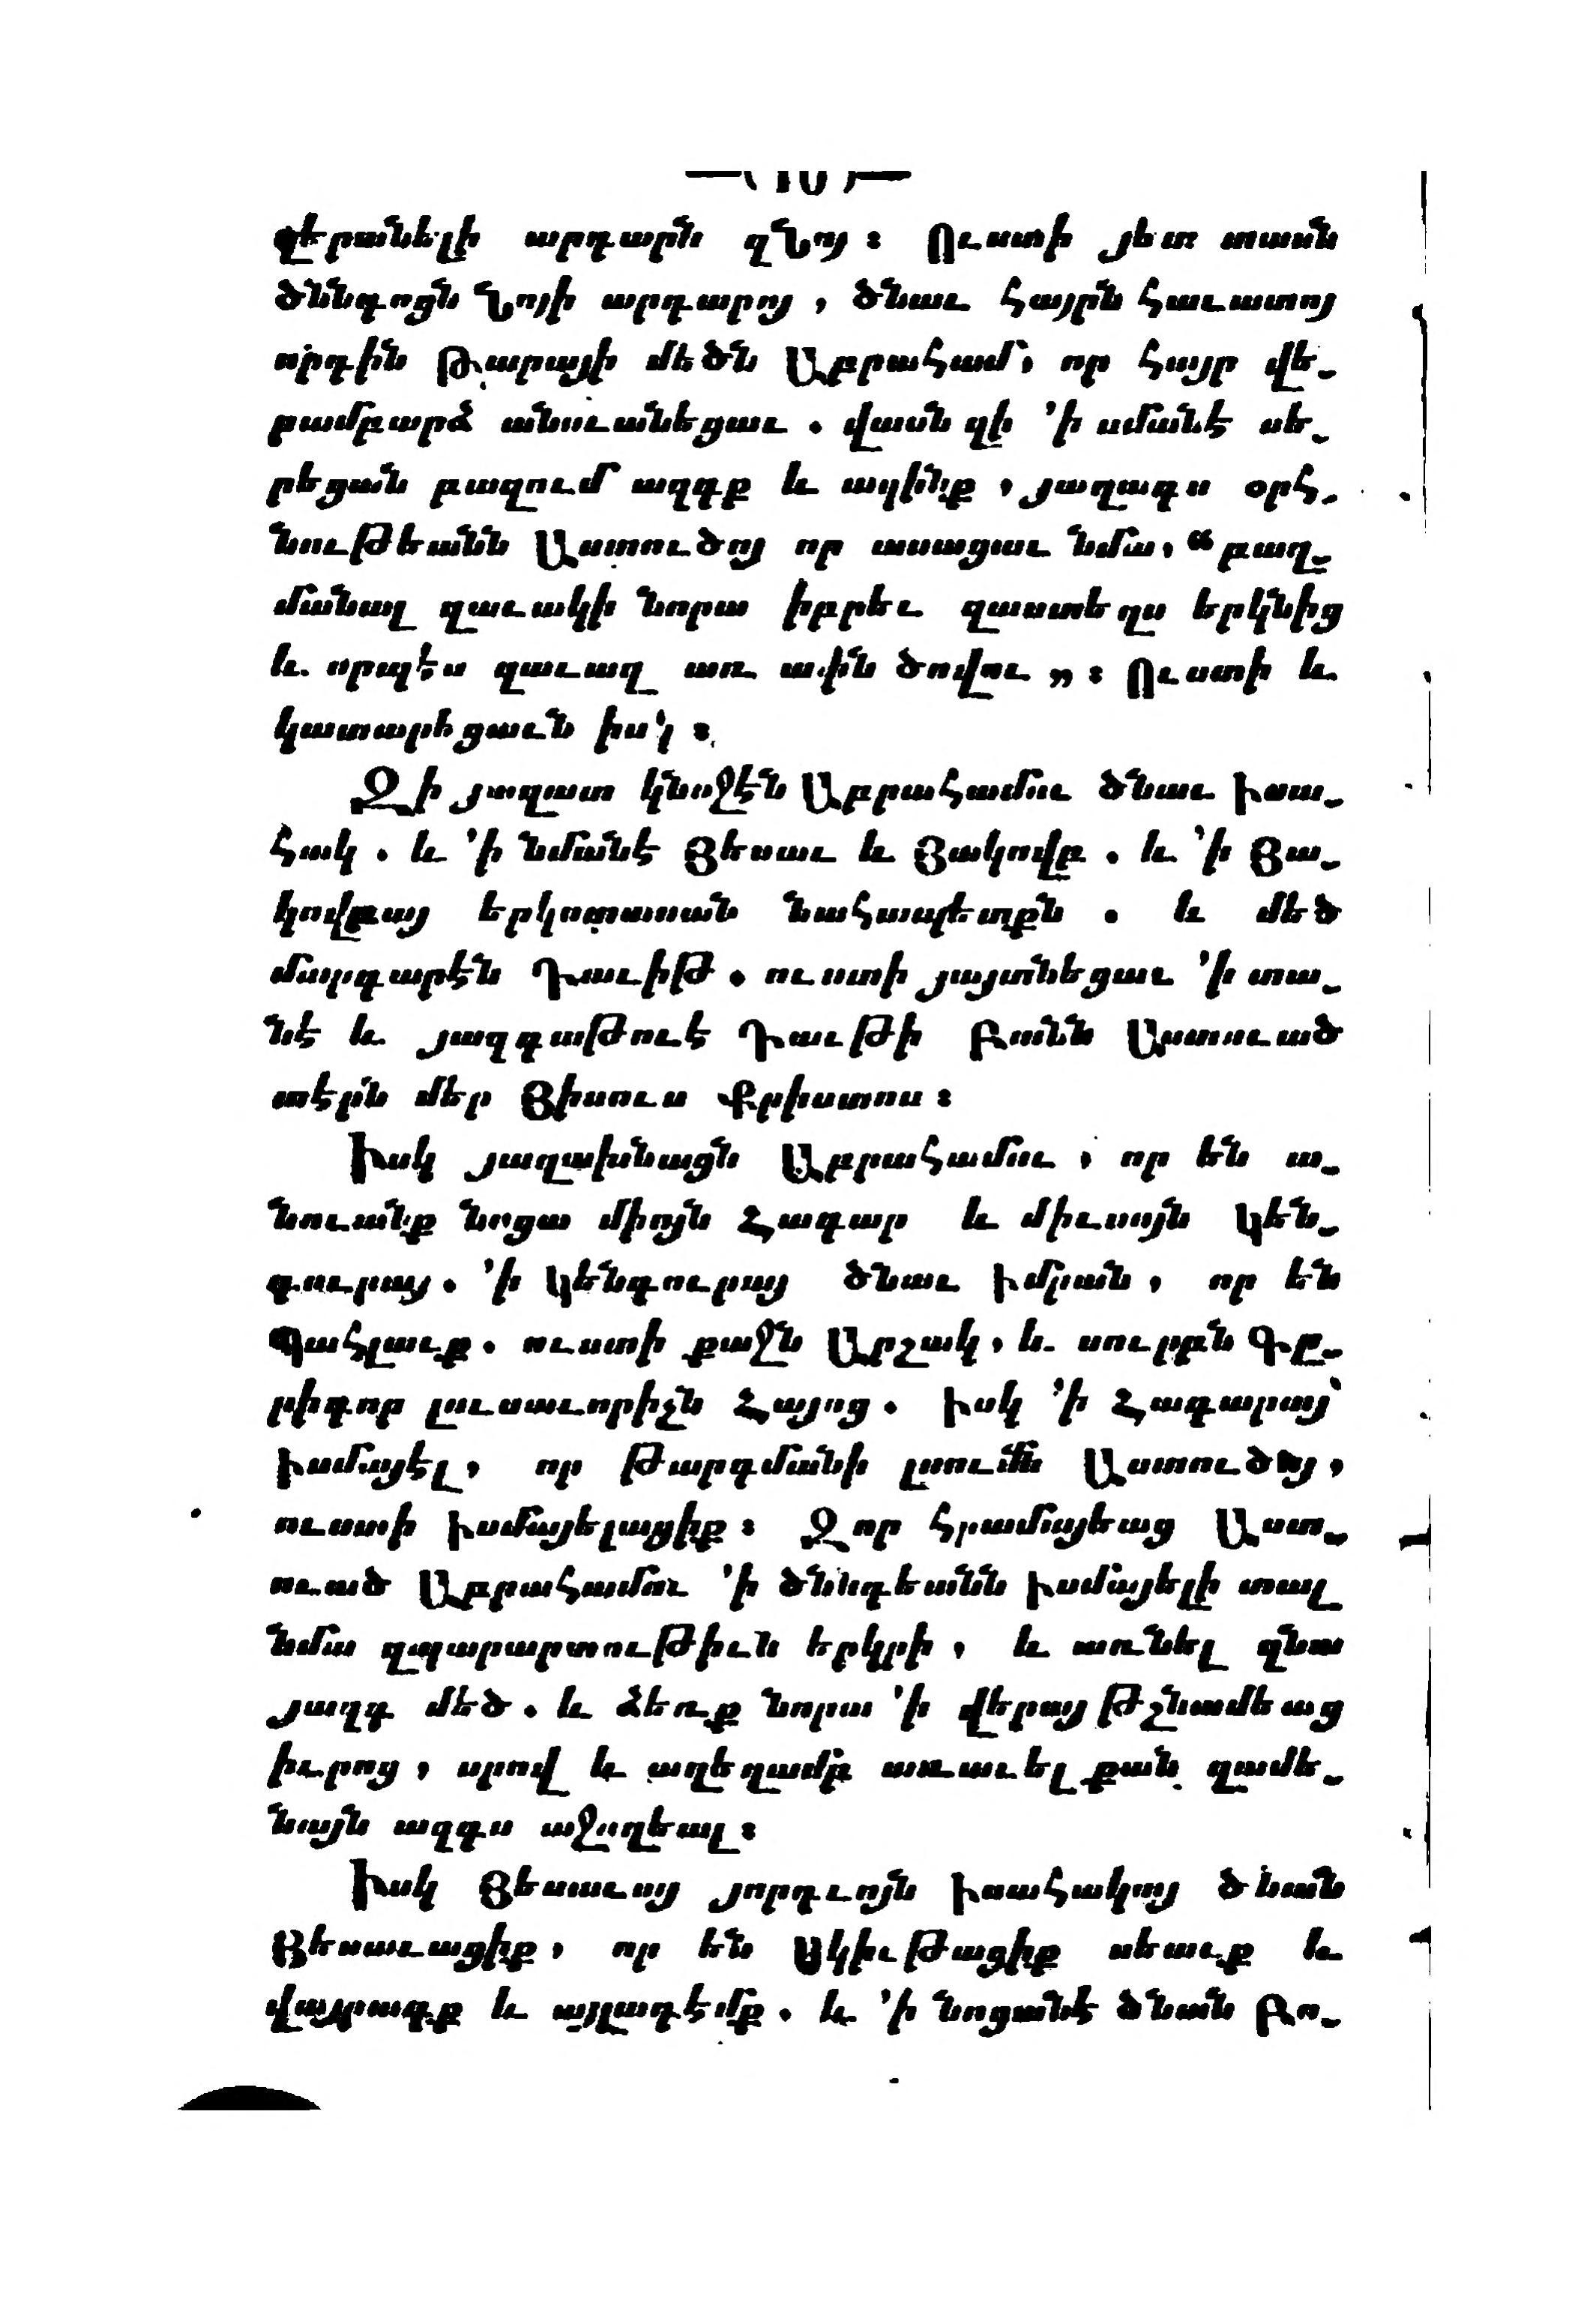 —(10)—
զերանելի արդարն զՆոյ ։ Ուստի յետ տասն
ծննգոցն Նոյի արդարոյ , ծնաւ հայրն հաւատոյ
որդին Թարայի մեծն Աբրահամ՝ որ հայր վե֊
րամբարձ անուանեցաւ . վասն զի ՚ի սմանէ սե֊
րեցան բազում ազգք և ազինք , յաղագս օրհ֊
նութեանն Աստուծոյ որ ասացաւ նմա, “բազ֊
մանալ զաւակի նորա իբրեւ զաստեղս երկնից
և որպէս զաւազ առ ափն ծովու „ ։ Ուստի և
կատարեցաւն իսկ ։
Զի յազատ կնոջէն Աբրահամու ծնաւ Իսա֊
հակ . և ՚ի նմանէ Յեսաւ և Յակովբ . և ՚ի Յա֊
կովբայ երկոտասան նահապետքն . և մեծ
մարգարէն Դաւիթ . ուստի յայտնեցաւ ՚ի տա֊
նէ և յազգաթուէ Դաւթի Բանն Աստուած
տէրն մեր Յիսուս Քրիստոս ։
Իսկ յաղախնացն Աբրահամու , որ են ա֊
նուանք նոցա միոյն Հագար և միւսոյն Կեն֊
գուրայ . ՚ի Կենգուրայ ծնաւ Իմրան , որ են
Պահլաւք . ուստի քաջն Արշակ , և սուրբն Գը֊
րիգոր լուսաւորիչն Հայոց . Իսկ ՚ի Հագարայ՝
Իսմայէլ , որ թարգմանի լսումն Աստուծոյ ,
ուստի Իսմայելացիք ։ Զոր հրամայեաց Աստ֊
ուած Աբրահամու ՚ի ծննդեանն Իսմայելի տալ
նմա զպարարտութիւն երկրի , և առնել զնա
յազգ մեծ . և ձեռք նորա ՚ի վերայ թշնամեաց
իւրոց , սրով և աղեղամբ առաւել քան զամե֊
նայն ազգս աջողեալ ։
Իսկ Յեսաւայ յորդւոյն Իսահակայ ծնան
Յեսաւացիք , որ են Սկիւթացիք սեաւք և
վայրագք և այլադէմք . և ՚ի նոցանէ ծնան Բո֊